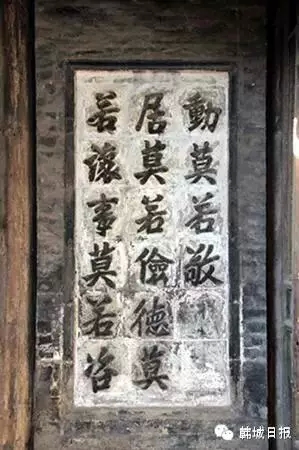 動莫若敬
居莫若儉德莫
若讓事莫若咨
韩城日报